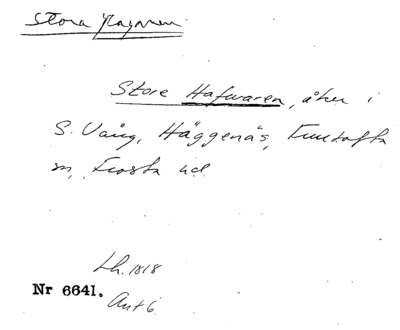 Stora Hagaren
Store Hafwaren, åker i
S. Vång, Häggenäs, Fulltofta
sn, Frosta hd
Lh. 1818
Nr 6641. Akt 6.